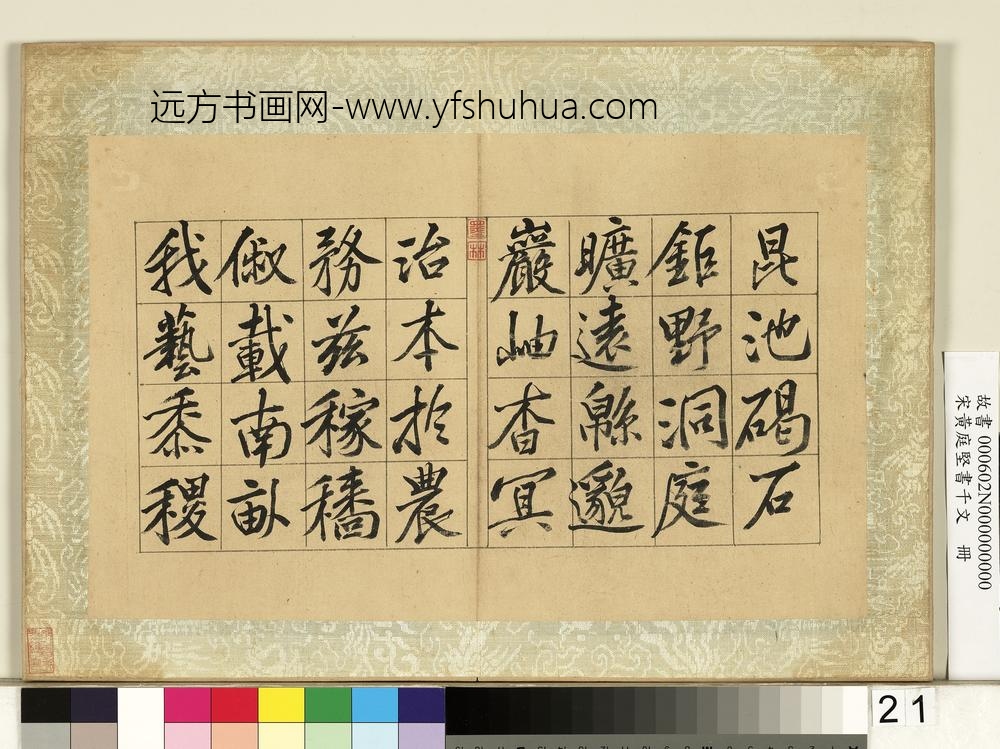 远方书画网-www.yfshuhua.com
昆池碣石
鉅野洞庭
曠遠緜邈
巖岫杳冥
治本於農
務茲稼穡
俶載南畝
我藝黍稷
故書 000602N000000000
宋黃庭堅書千文 冊
21